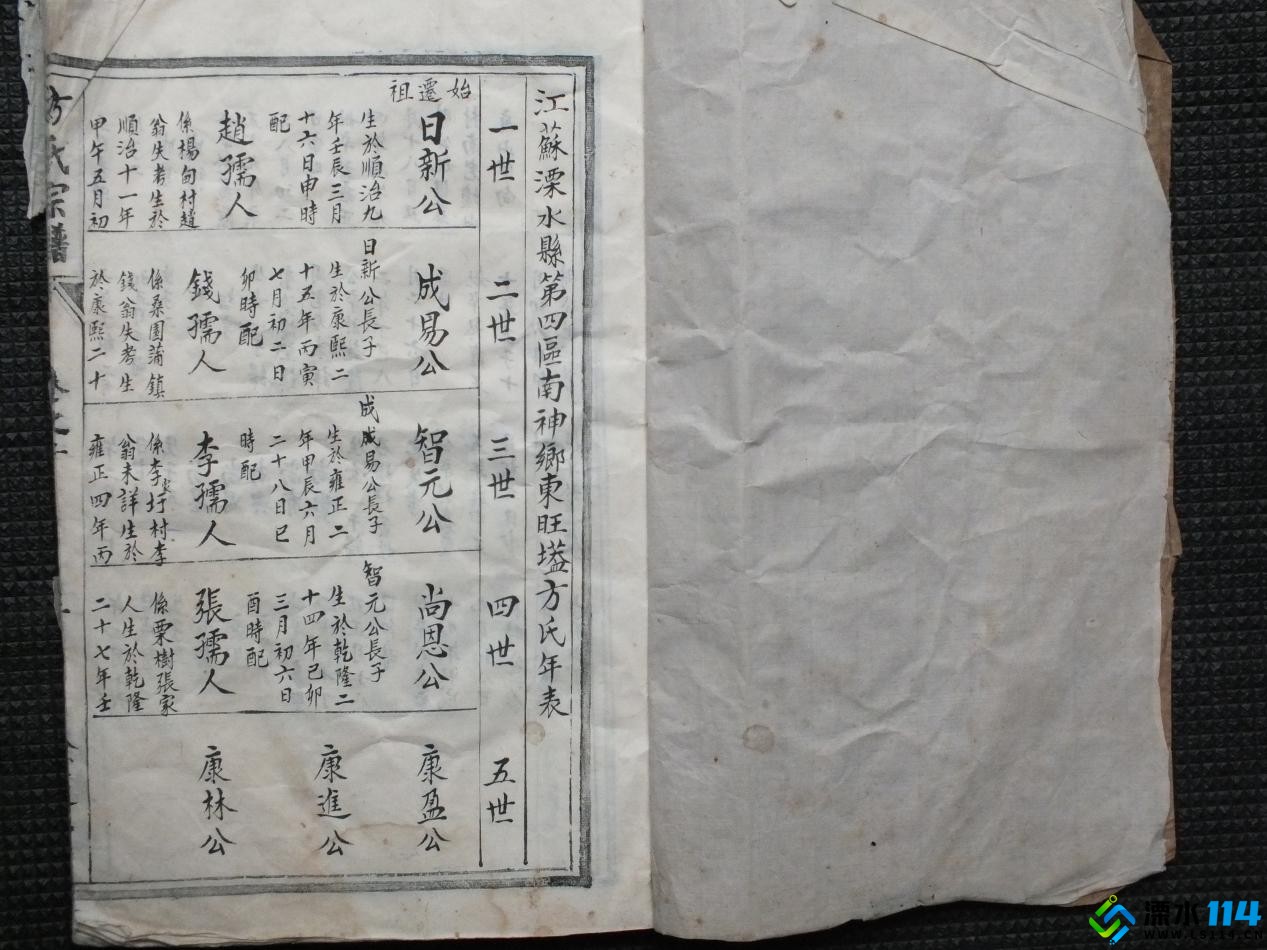 江蘇溧水縣第四區南神鄉東旺塧方氏年表
一世
二世
三世
四世
五世
始遷祖
日新公
生於順治九
年壬辰三月
十六日申時
配
趙孺人
係楊甸村趙
翁失考生於
順治十一年
甲午五月初
成易公
日新公長子
生於康熙二
十五年丙寅
七月初二日
卯時配
錢孺人
係桑園蒲鎮
錢翁失考生
於康熙二十
智元公
成成易公長子
生於雍正二
年甲辰六月
二十八日巳
時配
李孺人
係李家圩村李
翁未詳生於
雍正四年丙
尚恩公
智元公長子
生於乾隆二
十四年己卯
三月初六日
酉時配
張孺人
係栗樹張家
人生於乾隆
二十七年壬
康盈公
康進公
康林公
方氏宗譜
溧水114